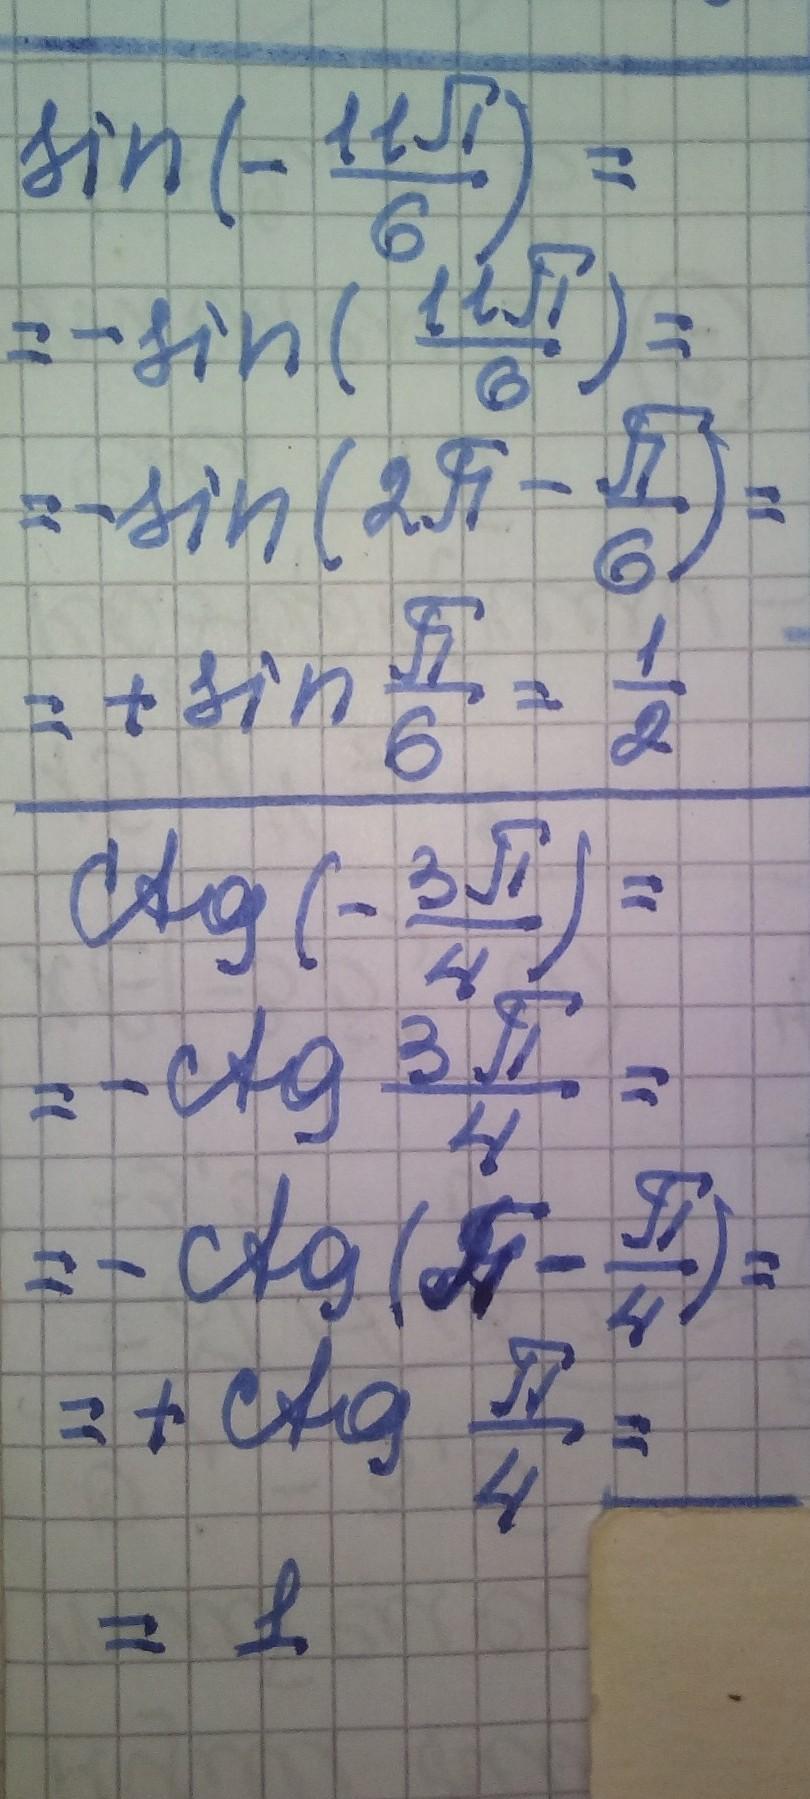 sin(- 11π/6) =
= - sin( 11π/6) =
= - sin(2π - π/6) =
= + sin π/6 = 1/2
ctg(- 3π/4) =
= - ctg 3π/4 =
= - ctg(π - π/4) =
= + ctg π/4 =
= 1